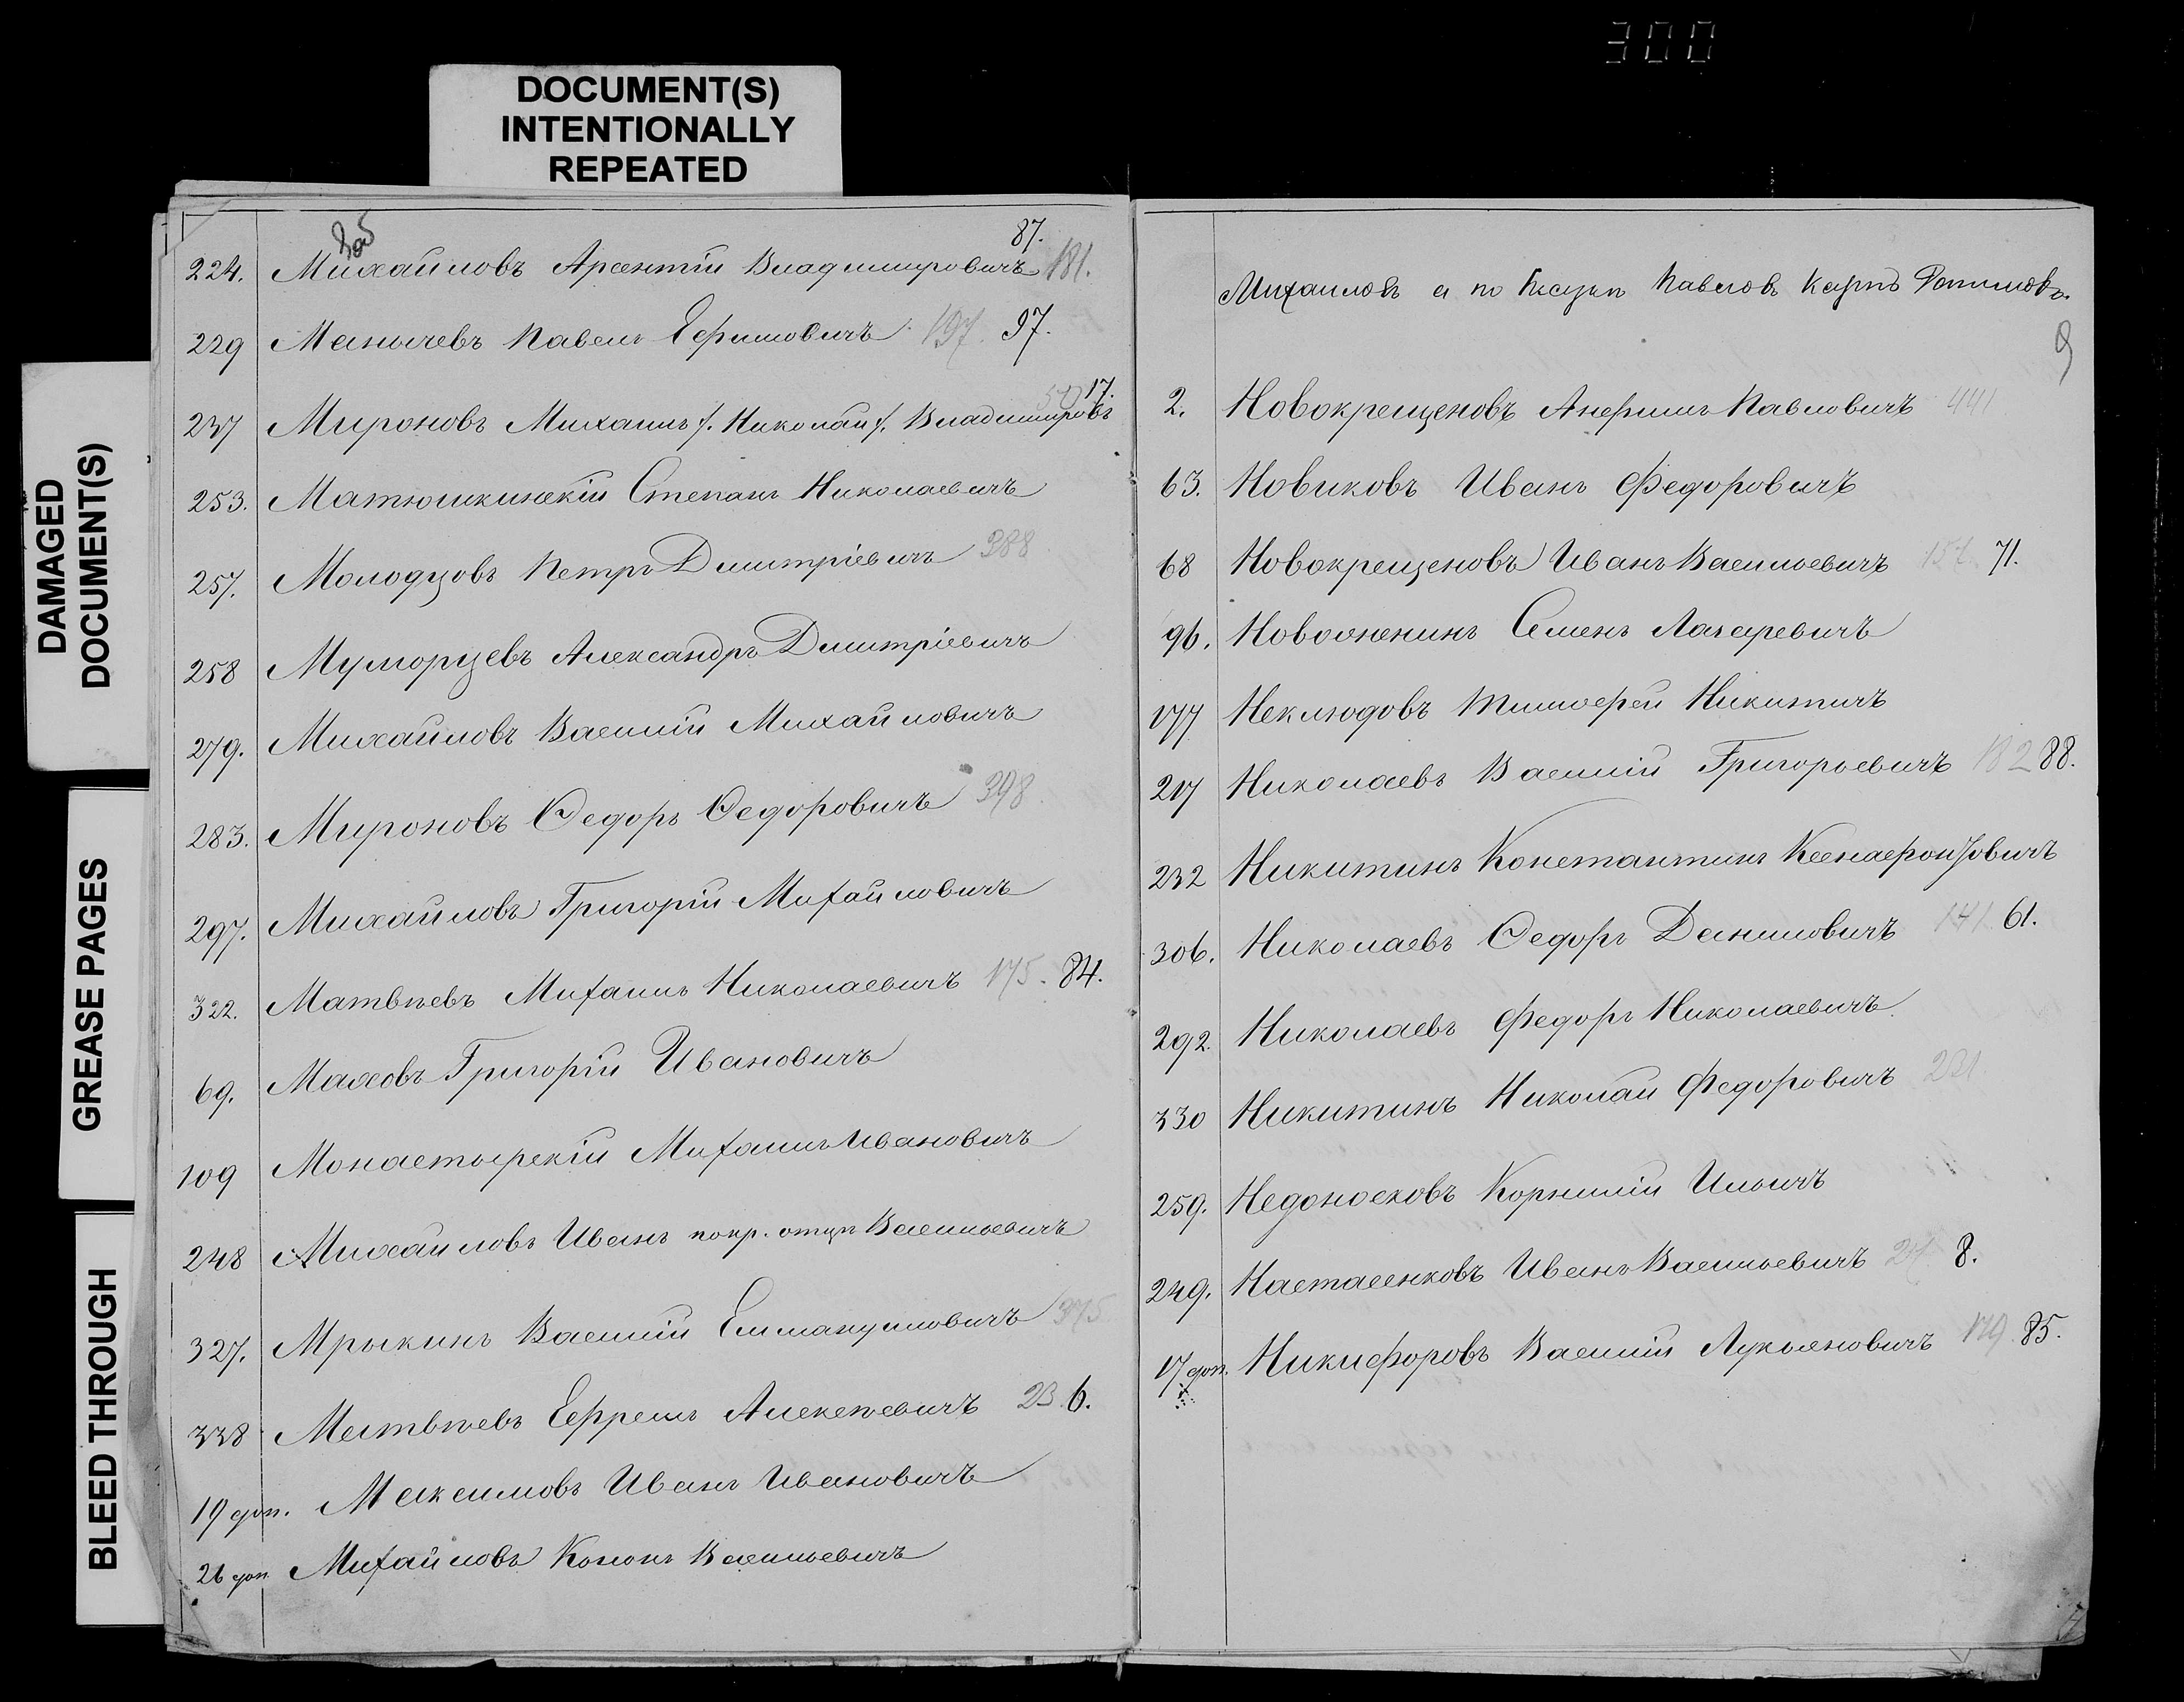 300
DOCUMENT(S)
INTENTIONALLY
REPEATED
DAMAGED
DOCUMENT(S)
GREASE PAGES
BLEED THROUGH
87.
224. Михайловъ Арсентій Владимировичъ 181.
229 Манычевъ Павелъ Ефимовичъ 197. 97.
17.
237 Мироновъ Михаилъ /. Николай /. Владимировъ
253. Матюшкинскій Степанъ Николаевичъ
257. Молодцовъ Петръ Дмитріевичъ 388
258 Муморцевъ Александръ Дмитріевичъ
279. Михайловъ Василій Михайловичъ
283. Мироновъ Ѳедоръ Ѳедоровичъ 398.
297. Михайловъ Григорій Михайловичъ
322. Матвѣевъ Михаилъ Николаевичъ 175. 84.
69. Маховъ Григорій Ивановичъ
109 Монастырскій Михаилъ Ивановичъ
248 Михайловъ Иванъ покр. отцѣ Васильевичъ
327. Мрыкинъ Василій Еммануиловичъ 375
338 Матвѣевъ Ефремъ Алексѣевичъ 23. 6.
19 доп. Максимовъ Иванъ Ивановичъ
26 доп Михайловъ Кононъ Васильевичъ
Михаиловъ а по Павловъ Карпъ
9
2. Новокрещеновъ Анфимъ Павловичъ 441
63. Новиковъ Иванъ Федоровичъ
68 Новокрещеновъ Иванъ Васильевичъ 71.
96. Семенъ Лазаревичъ
177 Неклюдовъ Тимофей Никитичъ
217 Николаевъ Василій Григорьевичъ 182 88.
232 Никитинъ Константинъ Ксенофонтовичъ
306. Николаевъ Ѳедоръ Даниловичъ 141 61.
292. Николаевъ Федоръ Николаевичъ
330 Никитинъ Николай Федоровичъ
259. Недоносковъ Корнилій Ильичъ
249. Настасенковъ Иванъ Васильевичъ 8.
17 доп. Никифоровъ Василій Лукьяновичъ 179. 85.